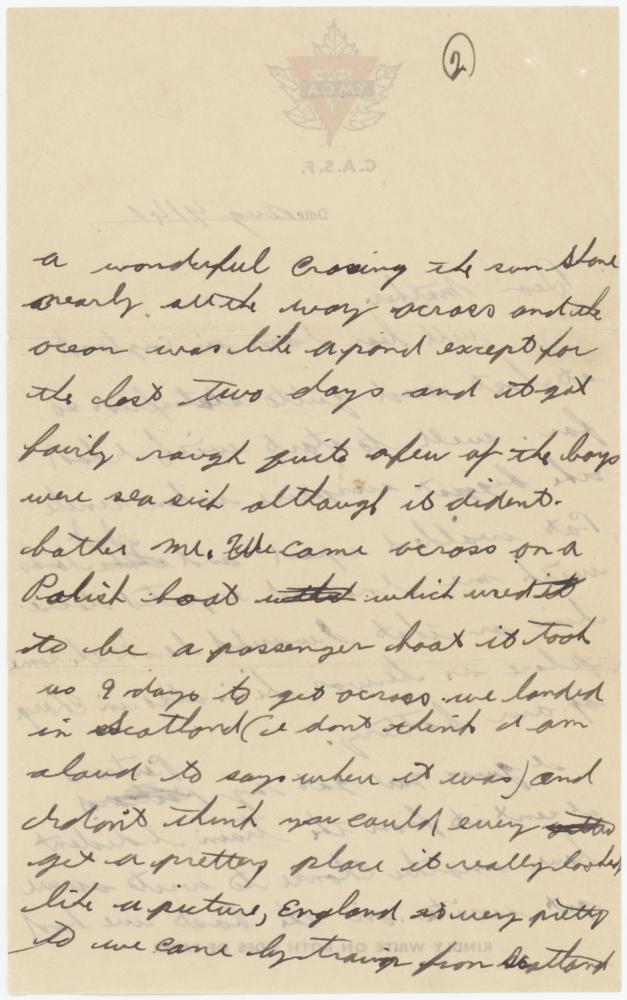 2
a wonderful crossing the sun shone
nearly all the way across and the
ocean was like a pond except for
the last two days and it got
fairly rough quite a few of the boys
were sea sick although it dident
bother me. We came across on a
Polish boat which used
to be a passenger boat it took
us 9 days to get across we landed
in Scotland (I dont think I am
aloud to say where it was) and
I dont think you could every
get a pretty place it really looked
like a picture, England is very pretty
to we came by train from Scotland
C.A.S.F.
Y.M.C.A
Date
KINDLY WRITE ON BOTH SIDES